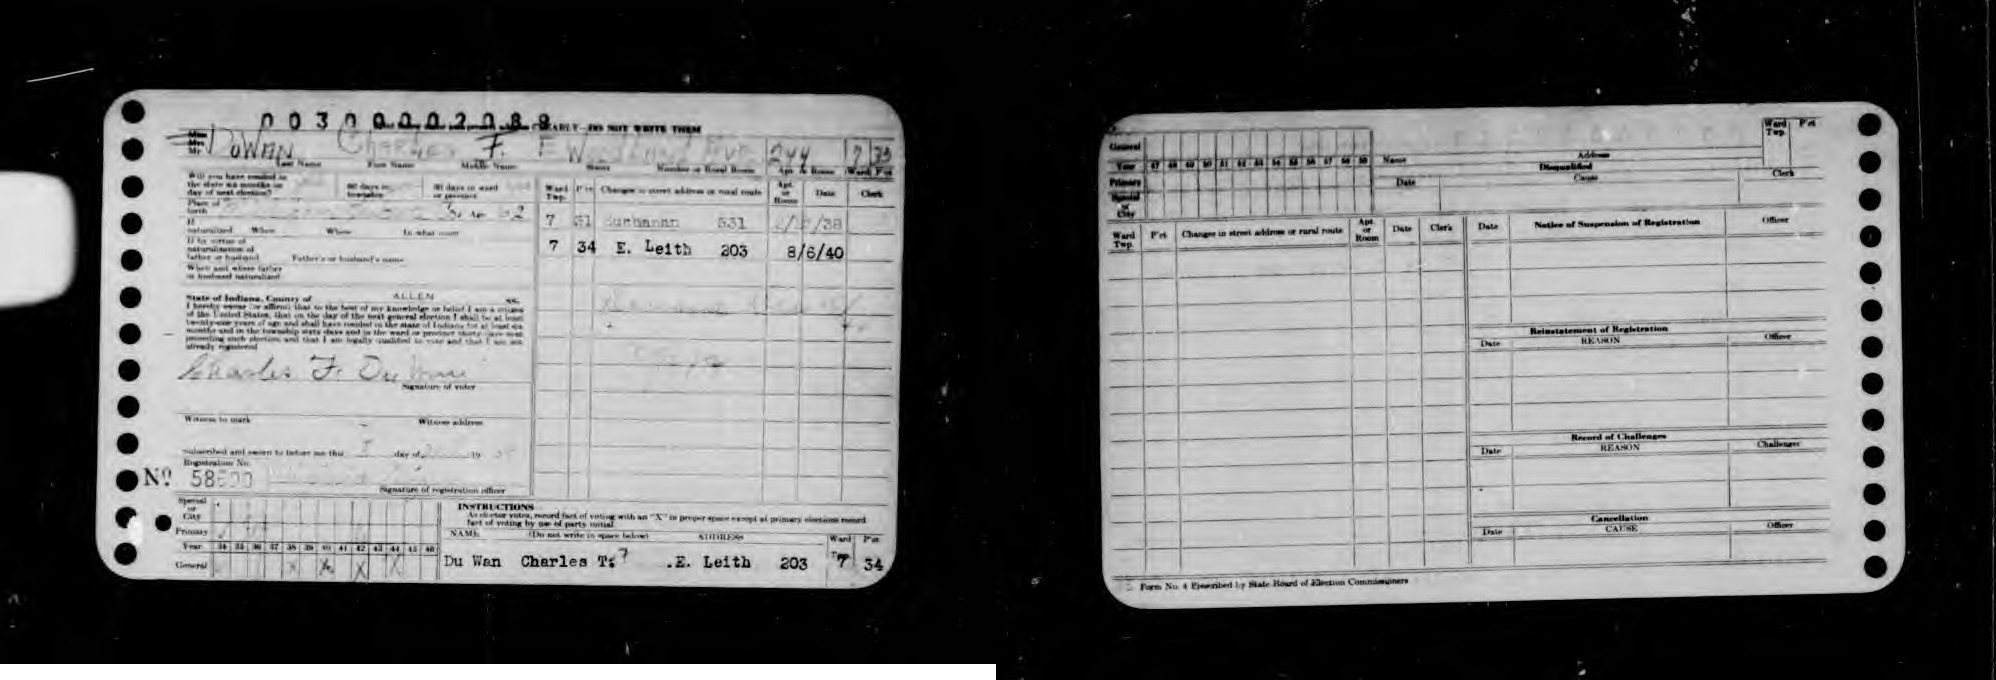 00300002088
EARLY—DO NOT WRITE THEM
Miss
Mrs
Mr. DuWan Charles F. E Woodland Ave 244 7 33
Last Name First Name Middle Name Street Number or Rural Route Apt. or Room Ward P'ct
Will you have resided in
the state six months on
day of next election? 60 days in township 30 days in ward or precinct
Place of
birth Age 52
If
naturalized When Where In what court
If by virtue of
naturalization of
father or husband Father's or husband's name
When and where father
or husband naturalized
State of Indiana, County of ALLEN ss.
I hereby swear (or affirm) that to the best of my knowledge or belief I am a citizen
of the United States, that on the day of the next general election I shall be at least
twenty-one years of age and shall have resided in the state of Indiana for at least six
months and in the township sixty days and in the ward or precinct thirty days next
preceding such election, and that I am legally qualified to vote and that I am not
already registered
Charles F. DuWan
Signature of voter
Witness to mark Witness address
Subscribed and sworn to before me this day of 19
Registration No.
No 58
Signature of registration officer
Ward Twp. P'ct Changes in street address or rural route Apt. or Room Date Clerk
7 31 Buchanan 531 /38
7 34 E. Leith 203 8/6/40
Special
or
City
Primary
Year 34 35 36 37 38 39 40 41 42 43 44 45 46
General X X X X
INSTRUCTIONS
As elector votes, record fact of voting with an "X" in proper space except at primary elections record
fact of voting by use of party initial.
NAME (Do not write in space below) ADDRESS Ward Twp. P'ct
Du Wan Charles T.? .E. Leith 203 7 34
General
Year 47 48 49 50 51 52 53 54 55 56 57 58 59
Primary
Special
or
City
Name Address Ward Twp. P'ct
Disqualified
Date Cause Clerk
Ward Twp. P'ct Changes in street address or rural route Apt. or Room Date Clerk
Date Notice of Suspension of Registration Officer
Reinstatement of Registration
Date REASON Officer
Record of Challenges
Date REASON Challenger
Cancellation
Date CAUSE Officer
Form No. 4 Prescribed by State Board of Election Commissioners